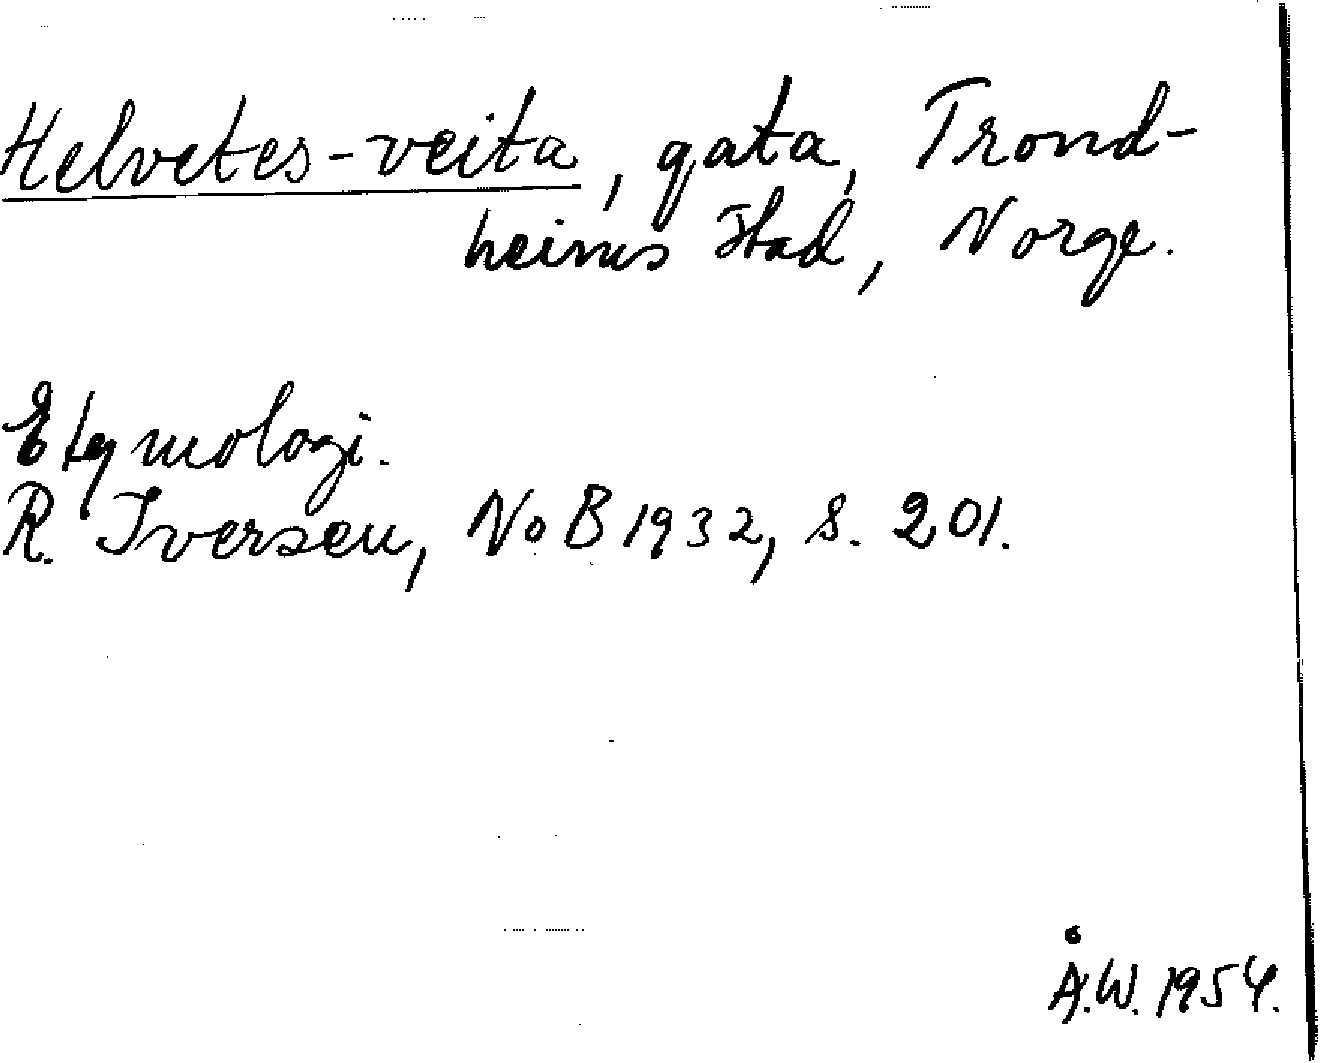 Helvetes-veita, gata, Trond-
heims stad, Norge.
Etymologi.
R. Iversen, NoB 1932, s. 201.
Å.W. 1954.